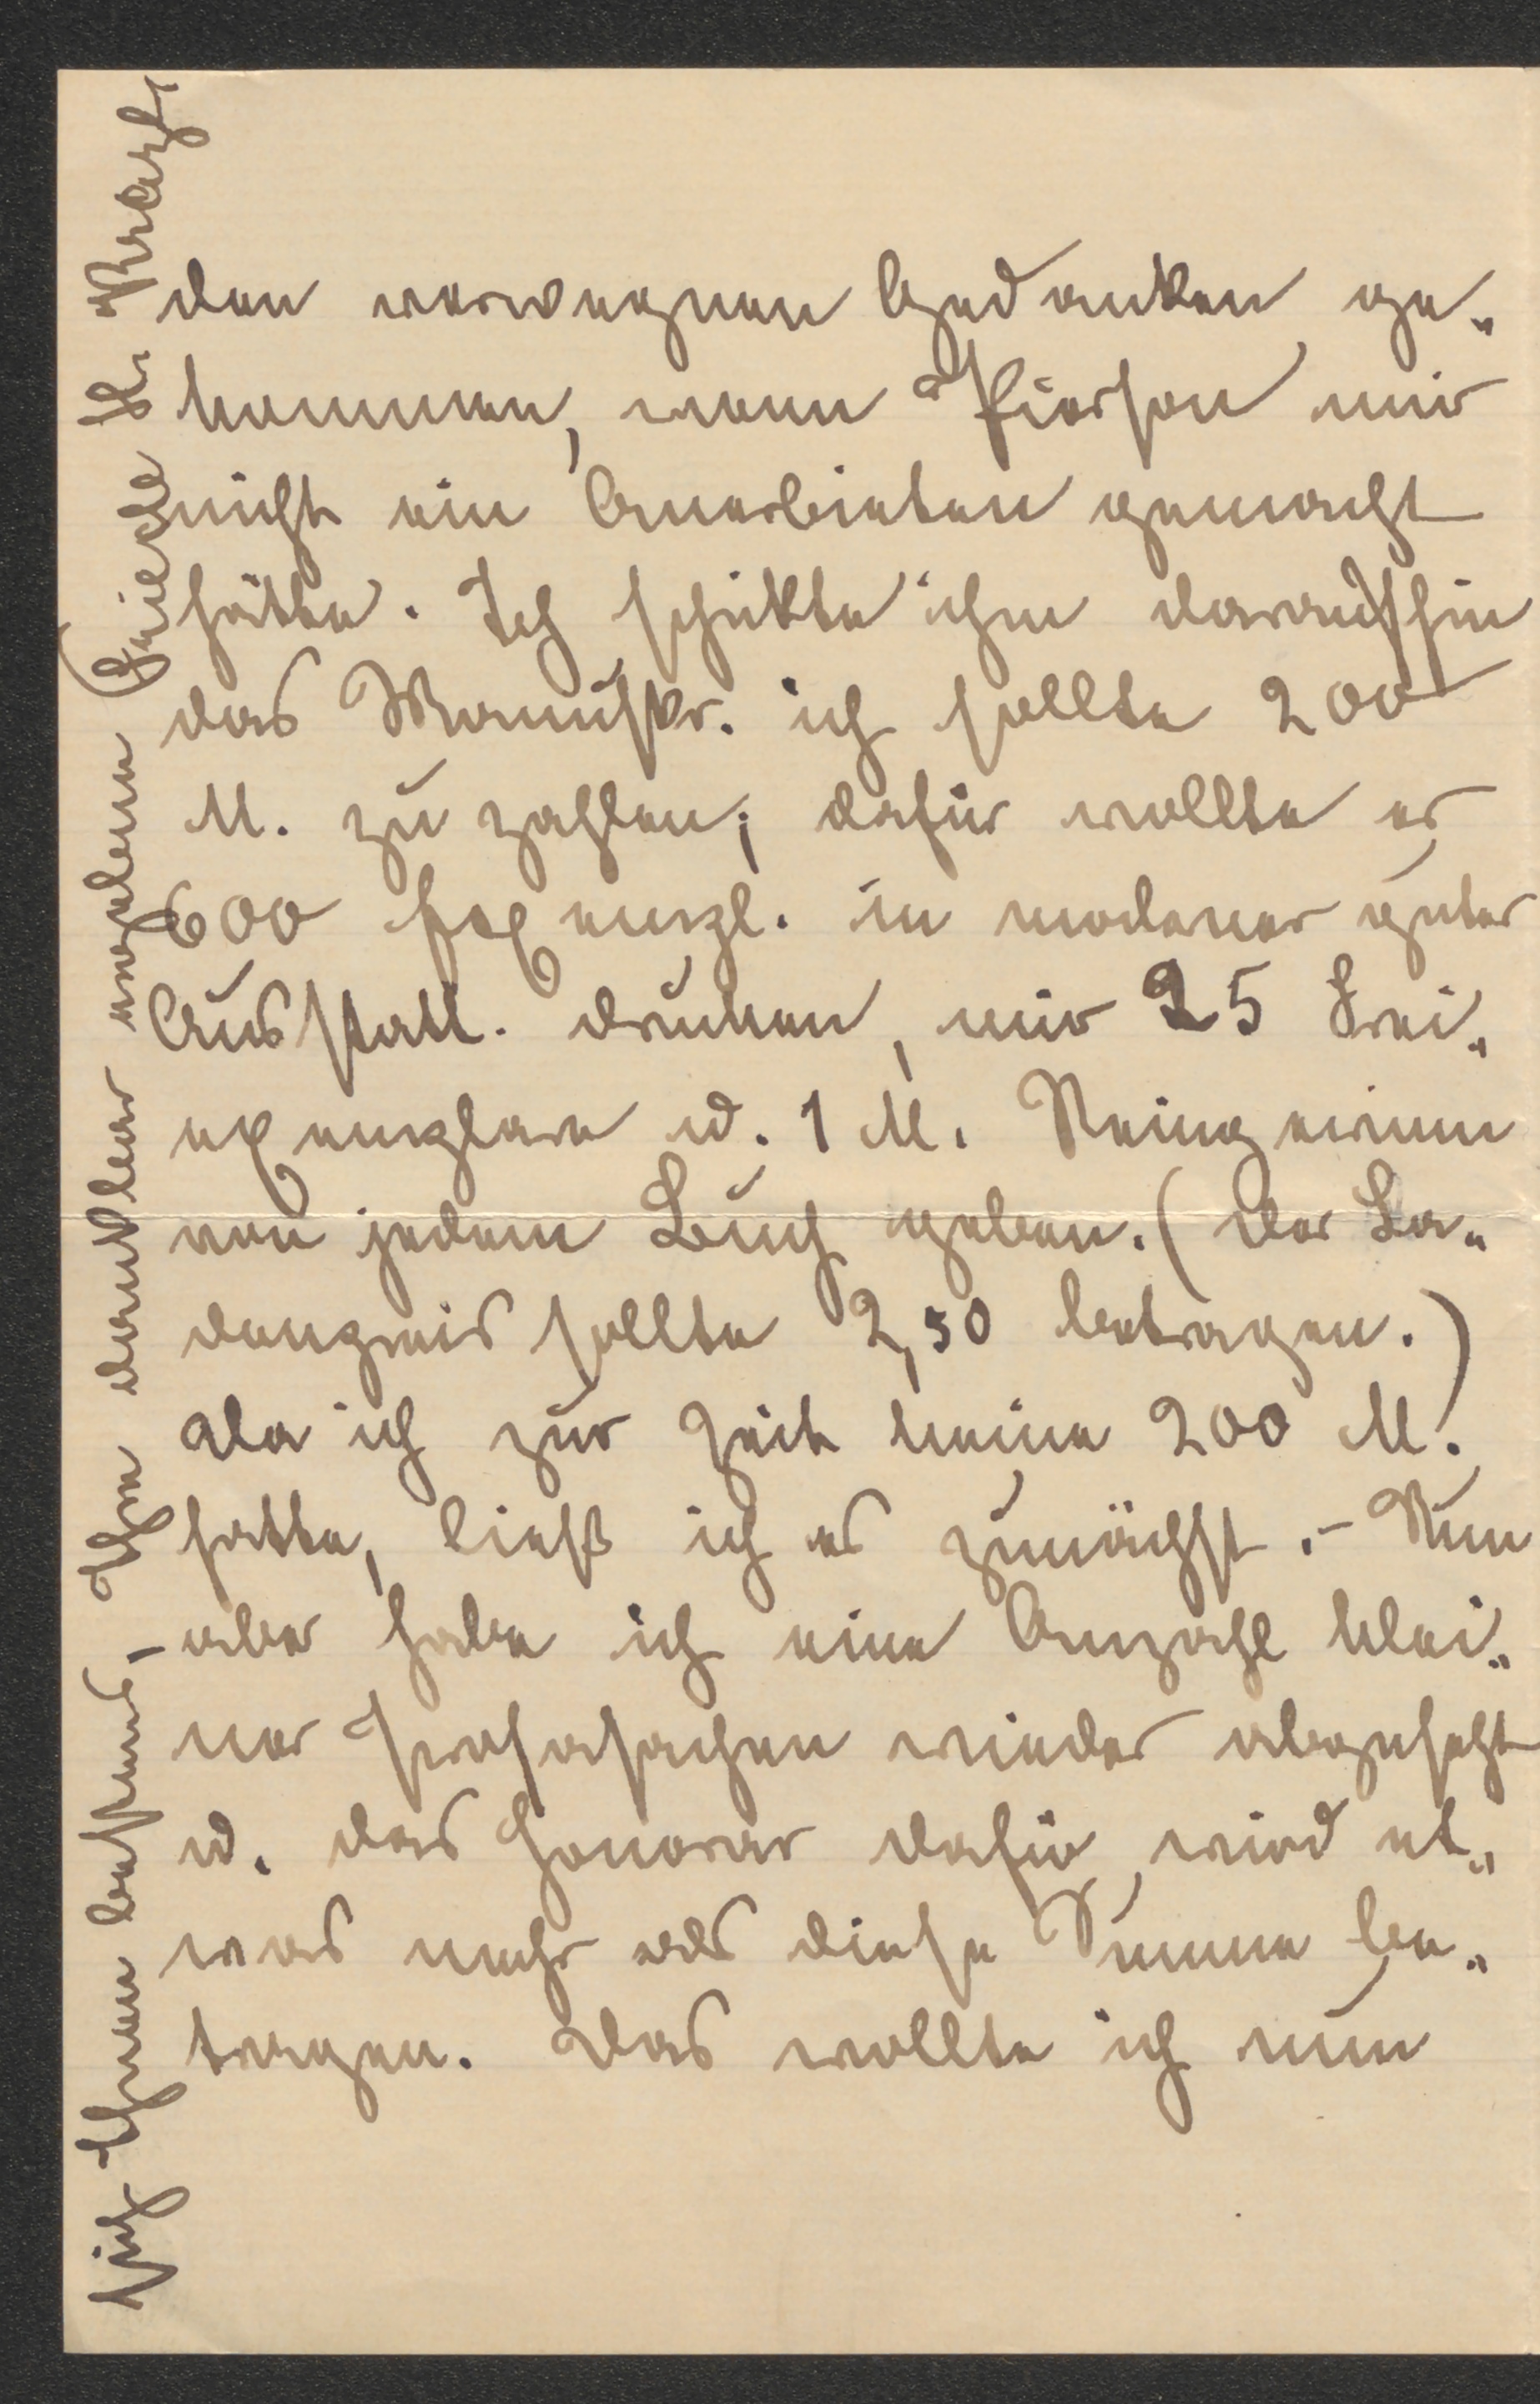 den verwegnen Gedanken ge-
kommen, wenn Pierson mir
nicht ein Anerbieten gemacht
hätte. Ich schikte ihm daraufhin
das Manuskr. ich sollte 200
M. zu zahlen; dafür wollte er
600 Exempl. in moderner guter
Ausstatt. drucken, mir 25 Frei-
exemplare u. 1 M. Reingewinn
von jedem Buch geben. (Der La-
denpreis sollte 2,50 betragen.)
Da ich zur Zeit keine 200 M.
hatte, ließ ich es zunächst. – Nun
aber habe ich eine Anzahl klei-
ner Prosasachen wieder abgesetzt
u. das Honorar dafür wird et-
was mehr als diese Summe be-
tragen. Das wollte ich nun
sich Ihnen bestens, Ihre dankbar ergebene